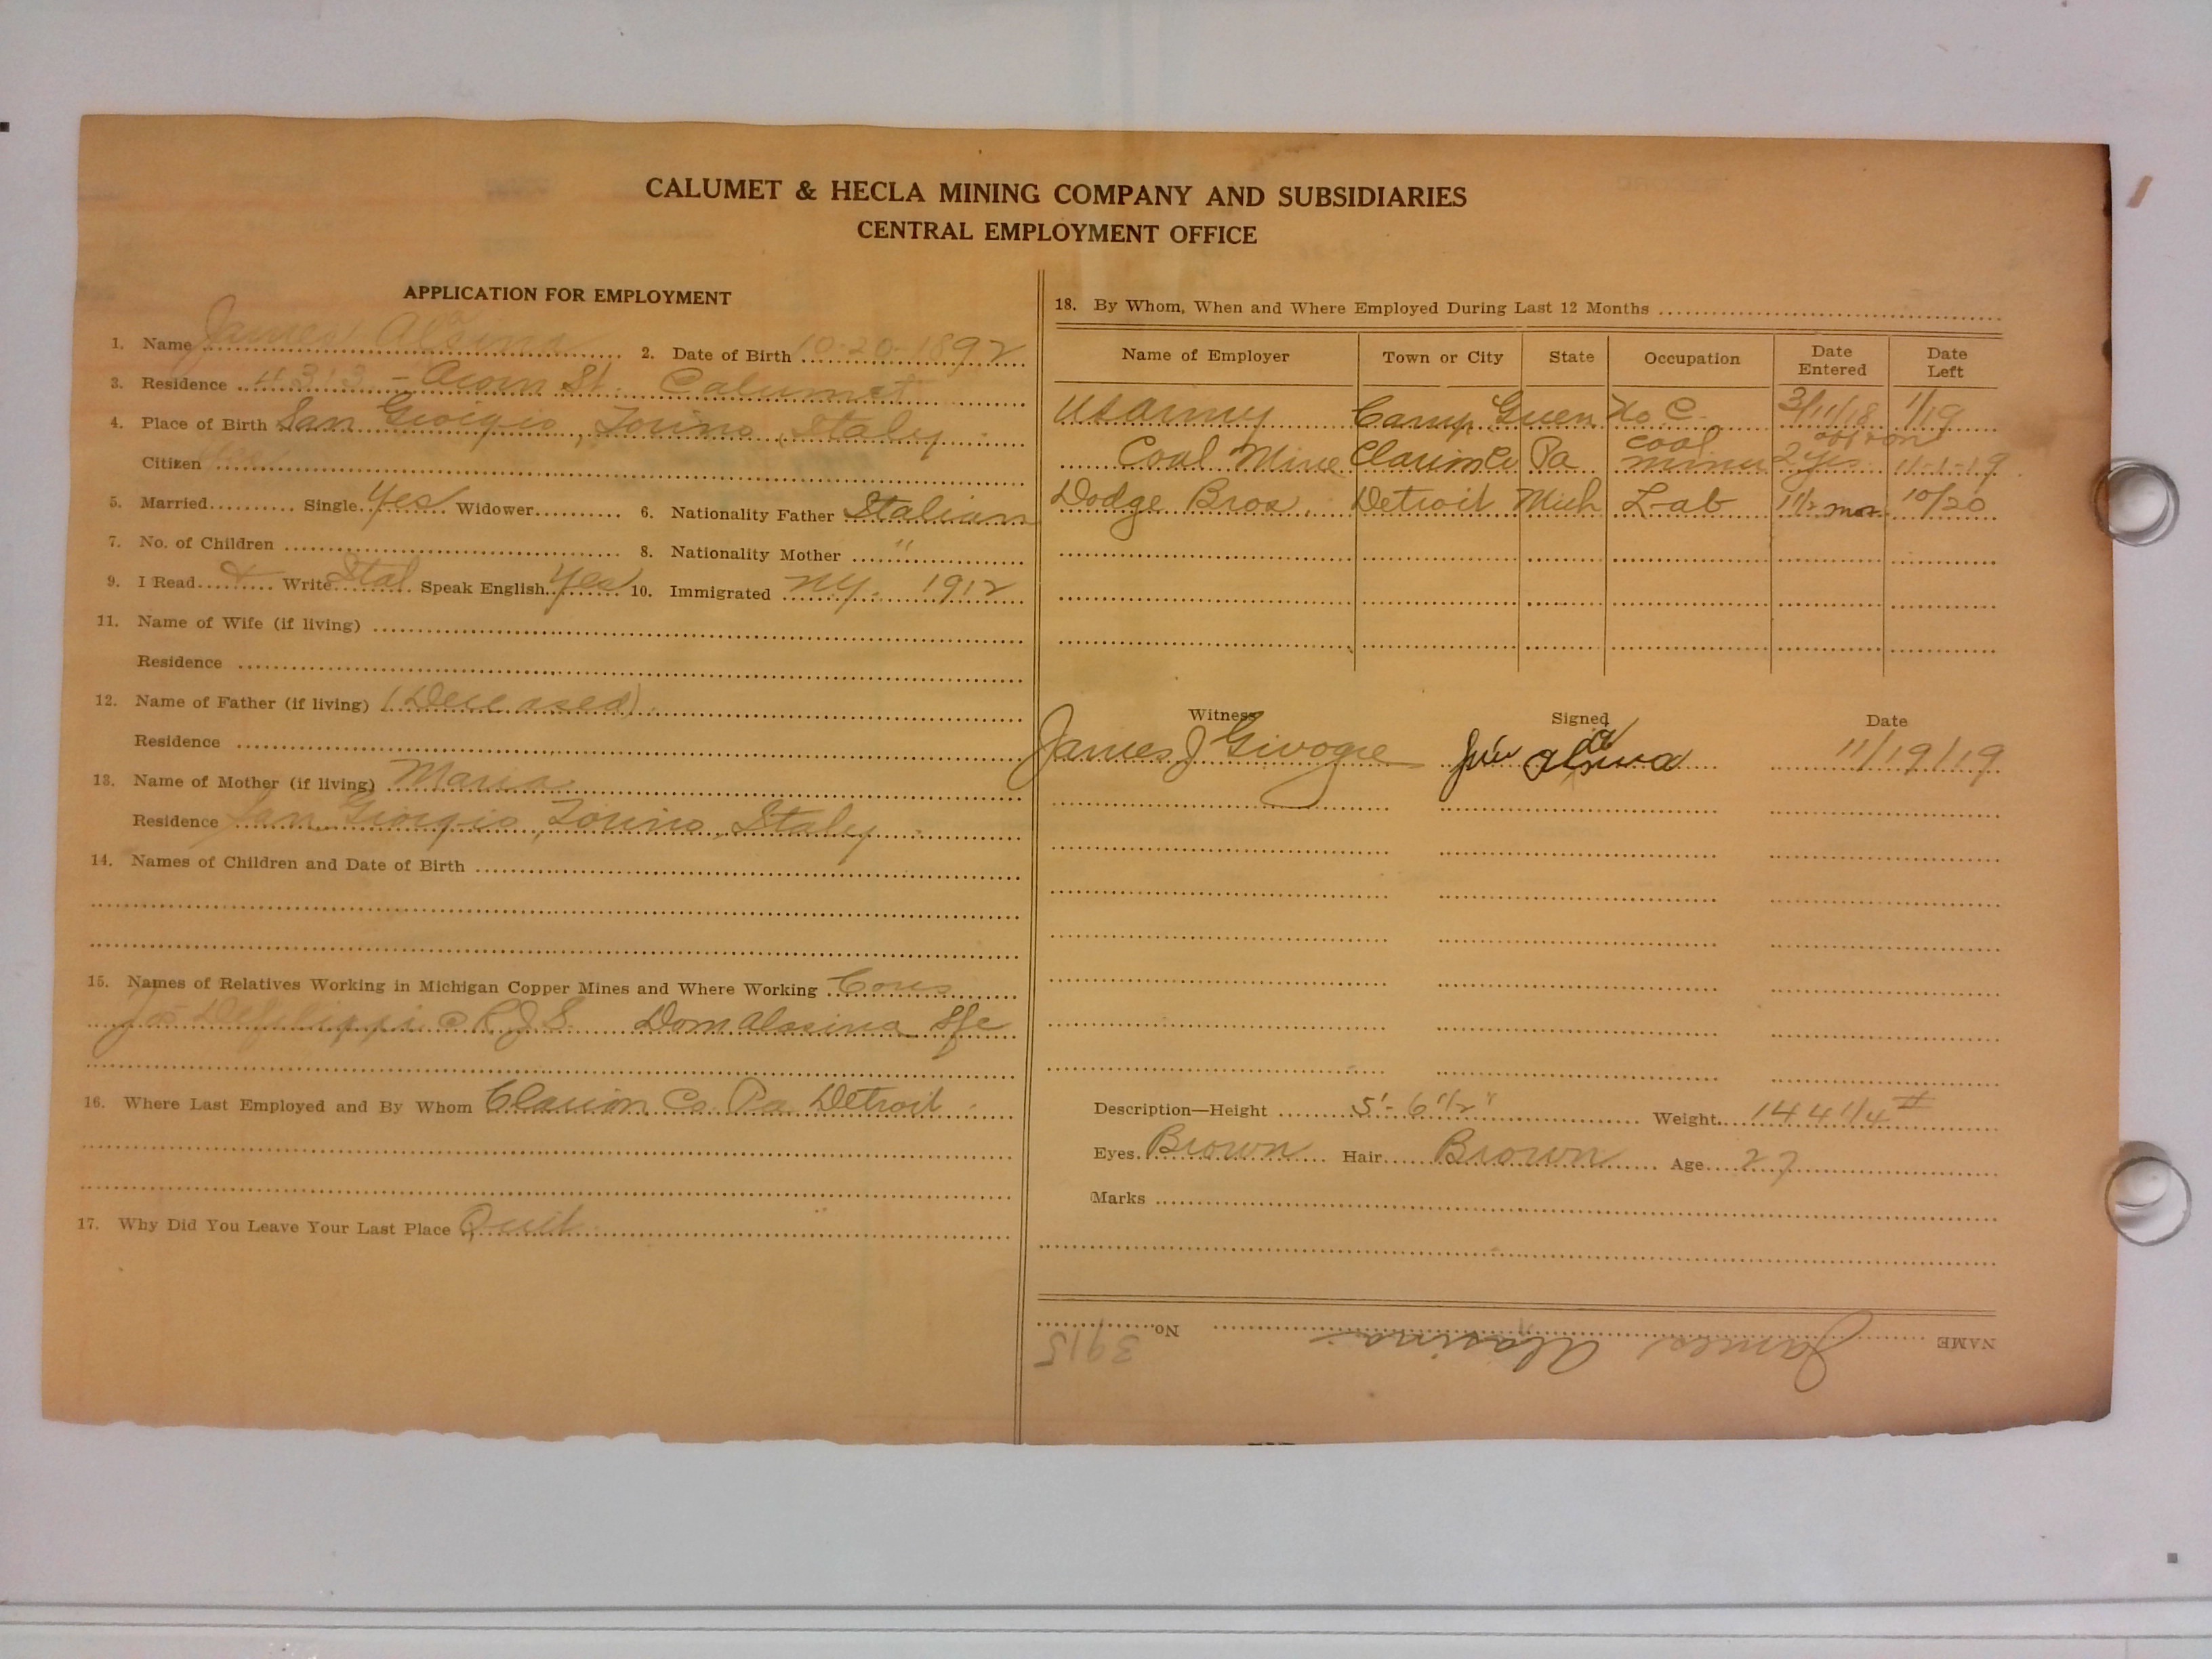 CALUMET & HECLA MINING COMPANY AND SUBSIDIARIES
CENTRAL EMPLOYMENT OFFICE
APPLICATION FOR EMPLOYMENT
1. Name James Alasina 2. Date of Birth 10-20-1892
3. Residence 4313 - Acorn St. Calumet
4. Place of Birth San Giorgio, Torino, Italy
Citizen
5. Married Single Yes Widower 6. Nationality Father Italian
7. No. of Children 8. Nationality Mother "
9. I Read & Write Ital Speak English Yes 10. Immigrated N.Y. 1912
11. Name of Wife (if living)
Residence
12. Name of Father (if living) (Deceased)
Residence
13. Name of Mother (if living) Maria
Residence San Giorgio, Torino, Italy
14. Names of Children and Date of Birth
15. Names of Relatives Working in Michigan Copper Mines and Where Working Cous
Jos Defilippi Dom Alasina
16. Where Last Employed and By Whom Clarion Co. Pa. Detroit
17. Why Did You Leave Your Last Place Quit
18. By Whom, When and Where Employed During Last 12 Months
Name of Employer Town or City State Occupation Date Entered Date Left
US Army Camp Green No C. 3/11/18 1/19
Coal Mine Clarion Co Pa coal miner 2 yrs off & on 11-1-19
Dodge Bros. Detroit Mich Lab 1 1/2 mos. 10/20
Witness Signed Date
James J Givogre Jim Alasina 11/19/19
Description—Height 5'-6 1/2" Weight 144 1/4 #
Eyes Brown Hair Brown Age 27
Marks
NAME James Alasina No. 3915